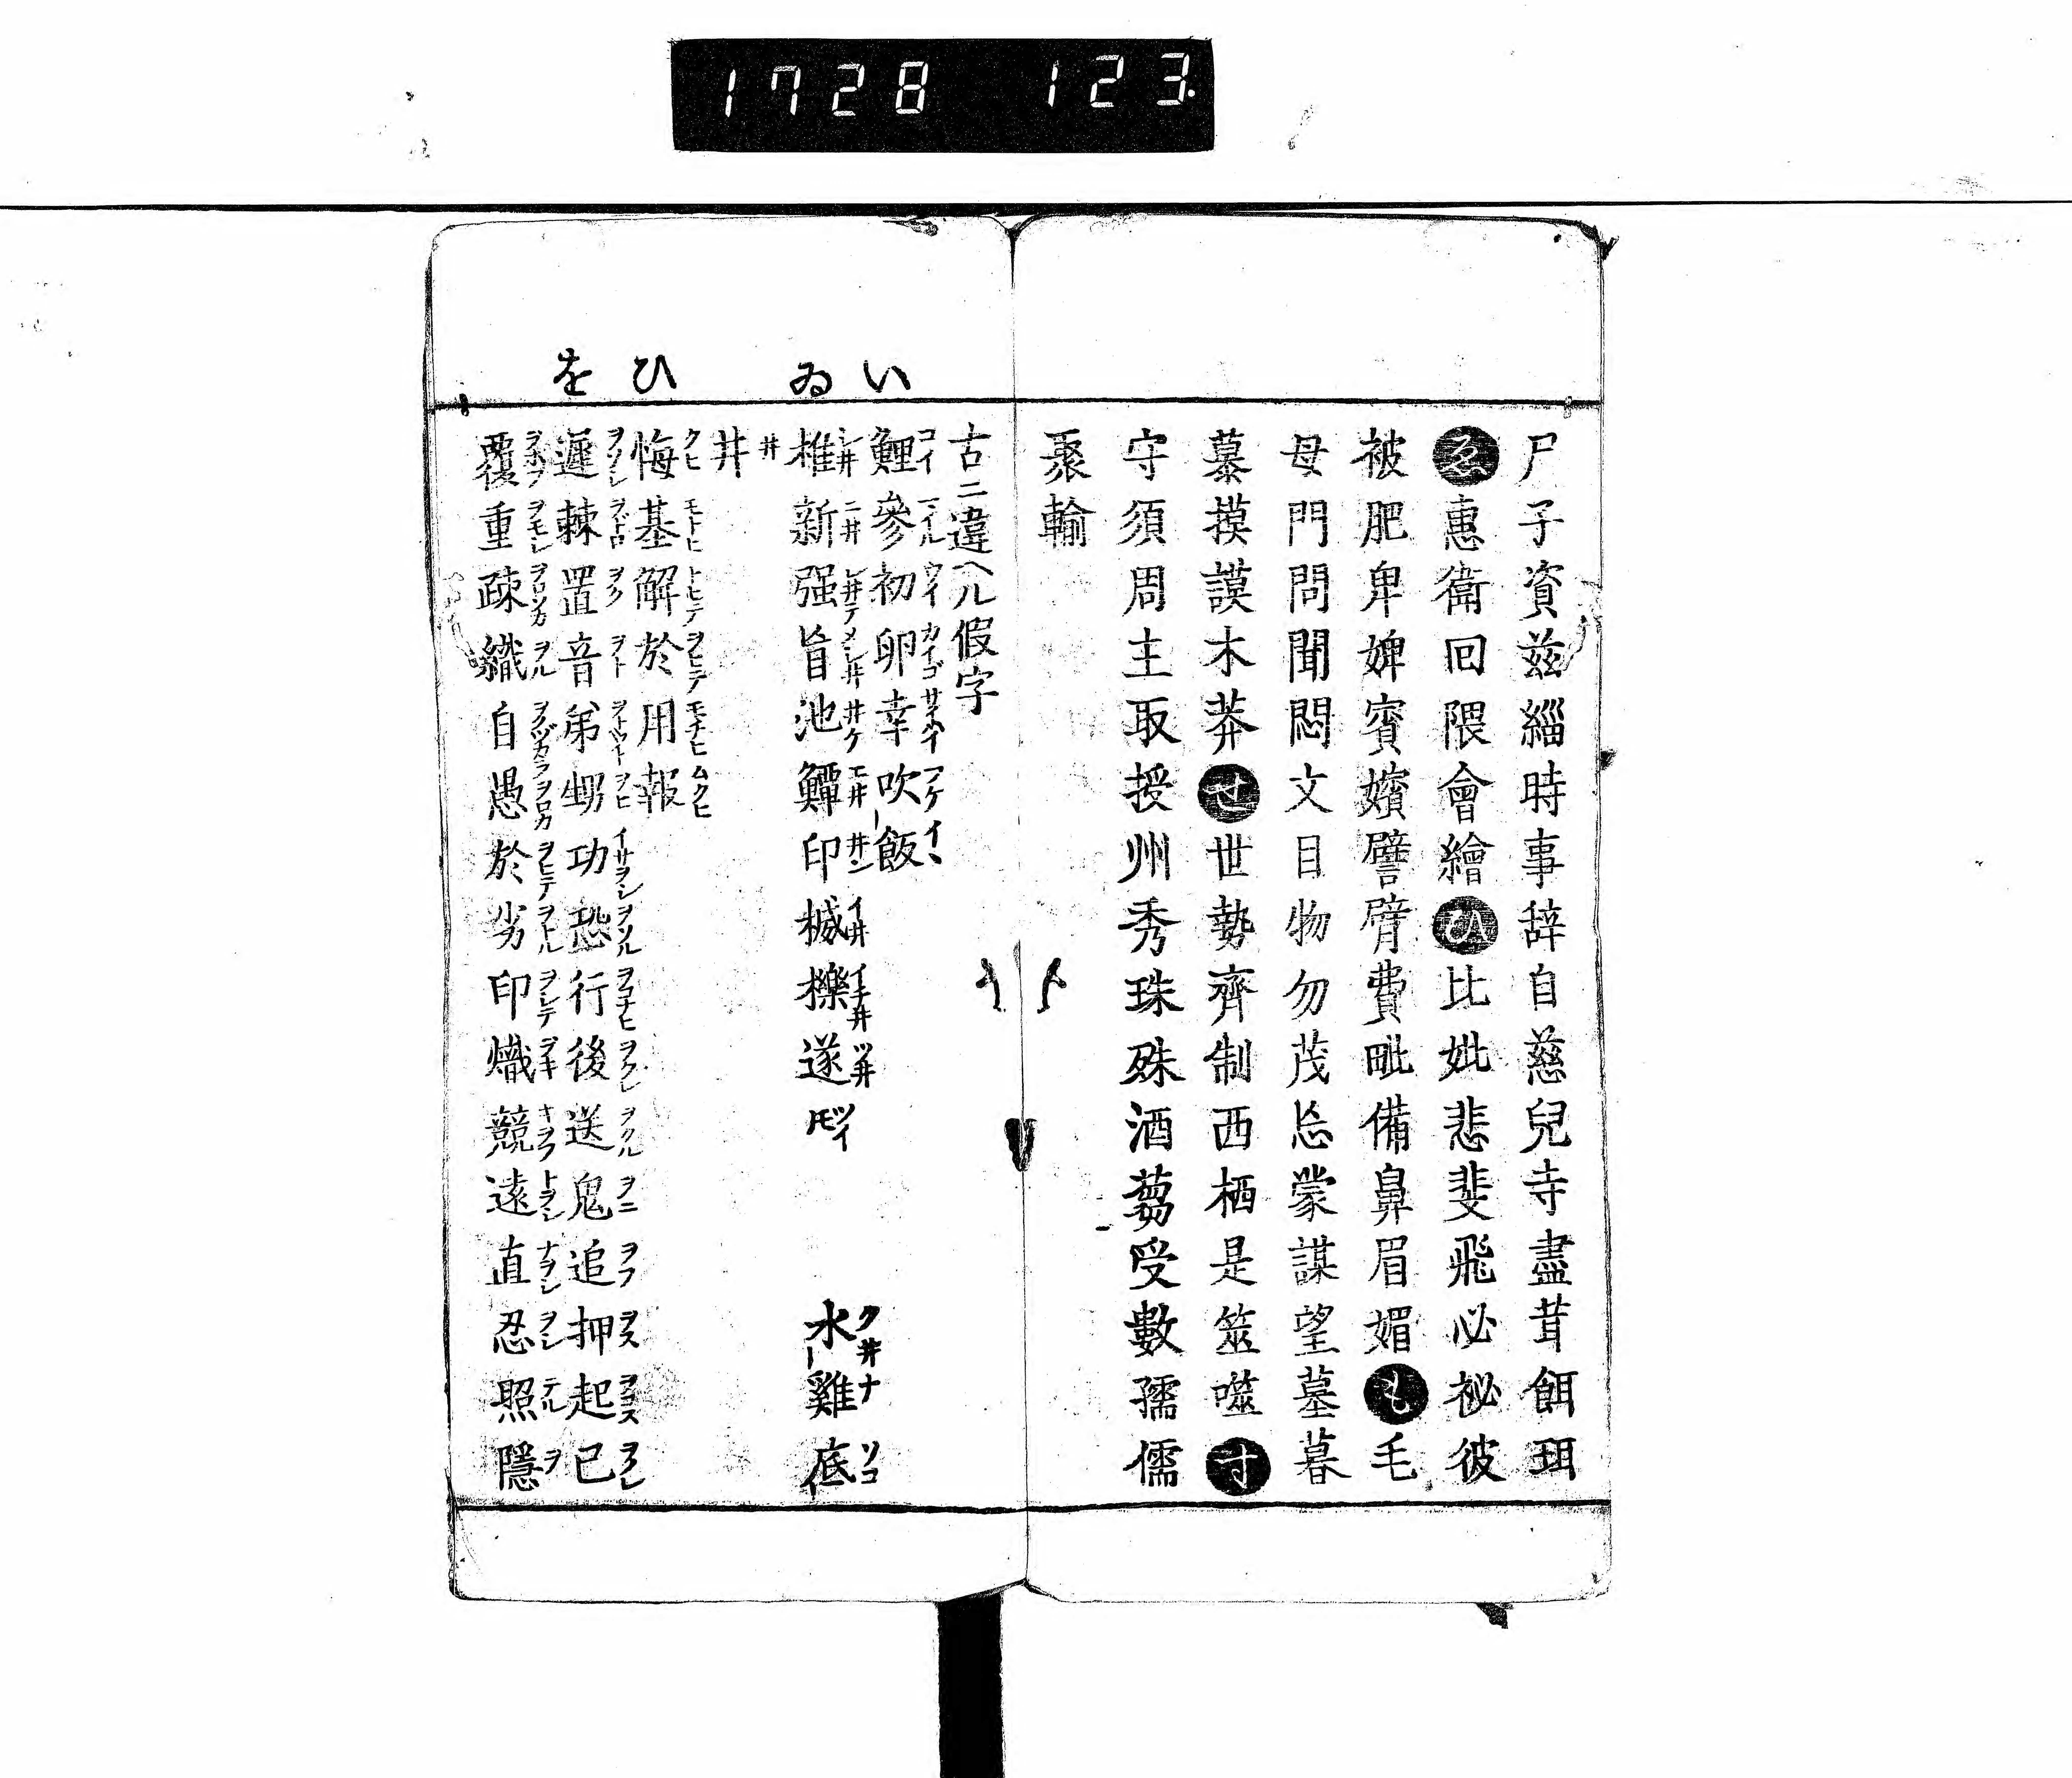 1728 123
尸子資茲緇時事辞自慈兒寺盡茸餌珥
ゑ惠衞回隈會繪ひ比妣悲斐飛必祕彼
被肥卑婢賓嬪譬臂費毗備鼻眉媚も毛
母門問聞悶文目物勿茂忘蒙謀望墓暮
慕摸謨木莽せ世勢齊制西栖是筮噬す
守須周主取授州秀珠殊酒蒭受數孺儒
聚輸
古ニ違ヘル假字
い
鯉コイ 參 初ウイ 卵カイゴ 幸サイハイ 吹 飯イヽ
ゐ
椎シ井 新ニ井 强シ井テ 旨 池井ケ 鱓 印 椷 櫟イチ井 遂ツ井 水クヒナ 雞 底ソコ
井井
ひ
悔クヒ 基モトヒ 解トヒテ 於ヲヒテ 用モチヒ 報ムクヒ
を
遲ヲソシ 棘ヲドロ 置ヲク 音ヲト 弟ヲトウト 甥ヲヒ 功イサヲシ 恐ヲソル 行ヲコナヒ 後ヲクレ 送ヲクル 鬼ヲニ 追ヲフ 押ヲス 起ヲコス 已ヲノレ
覆ヲホフ 重ヲモシ 疎ヲロソカ 織ヲル 自ヲノヅカラ 愚ヲロカ 於ヲヒテ 劣ヲトル 印ヲシテ 熾 競キヲフ 遠トヲシ 直ナヲシ 忍ヲシ 照テル 隱ヲ